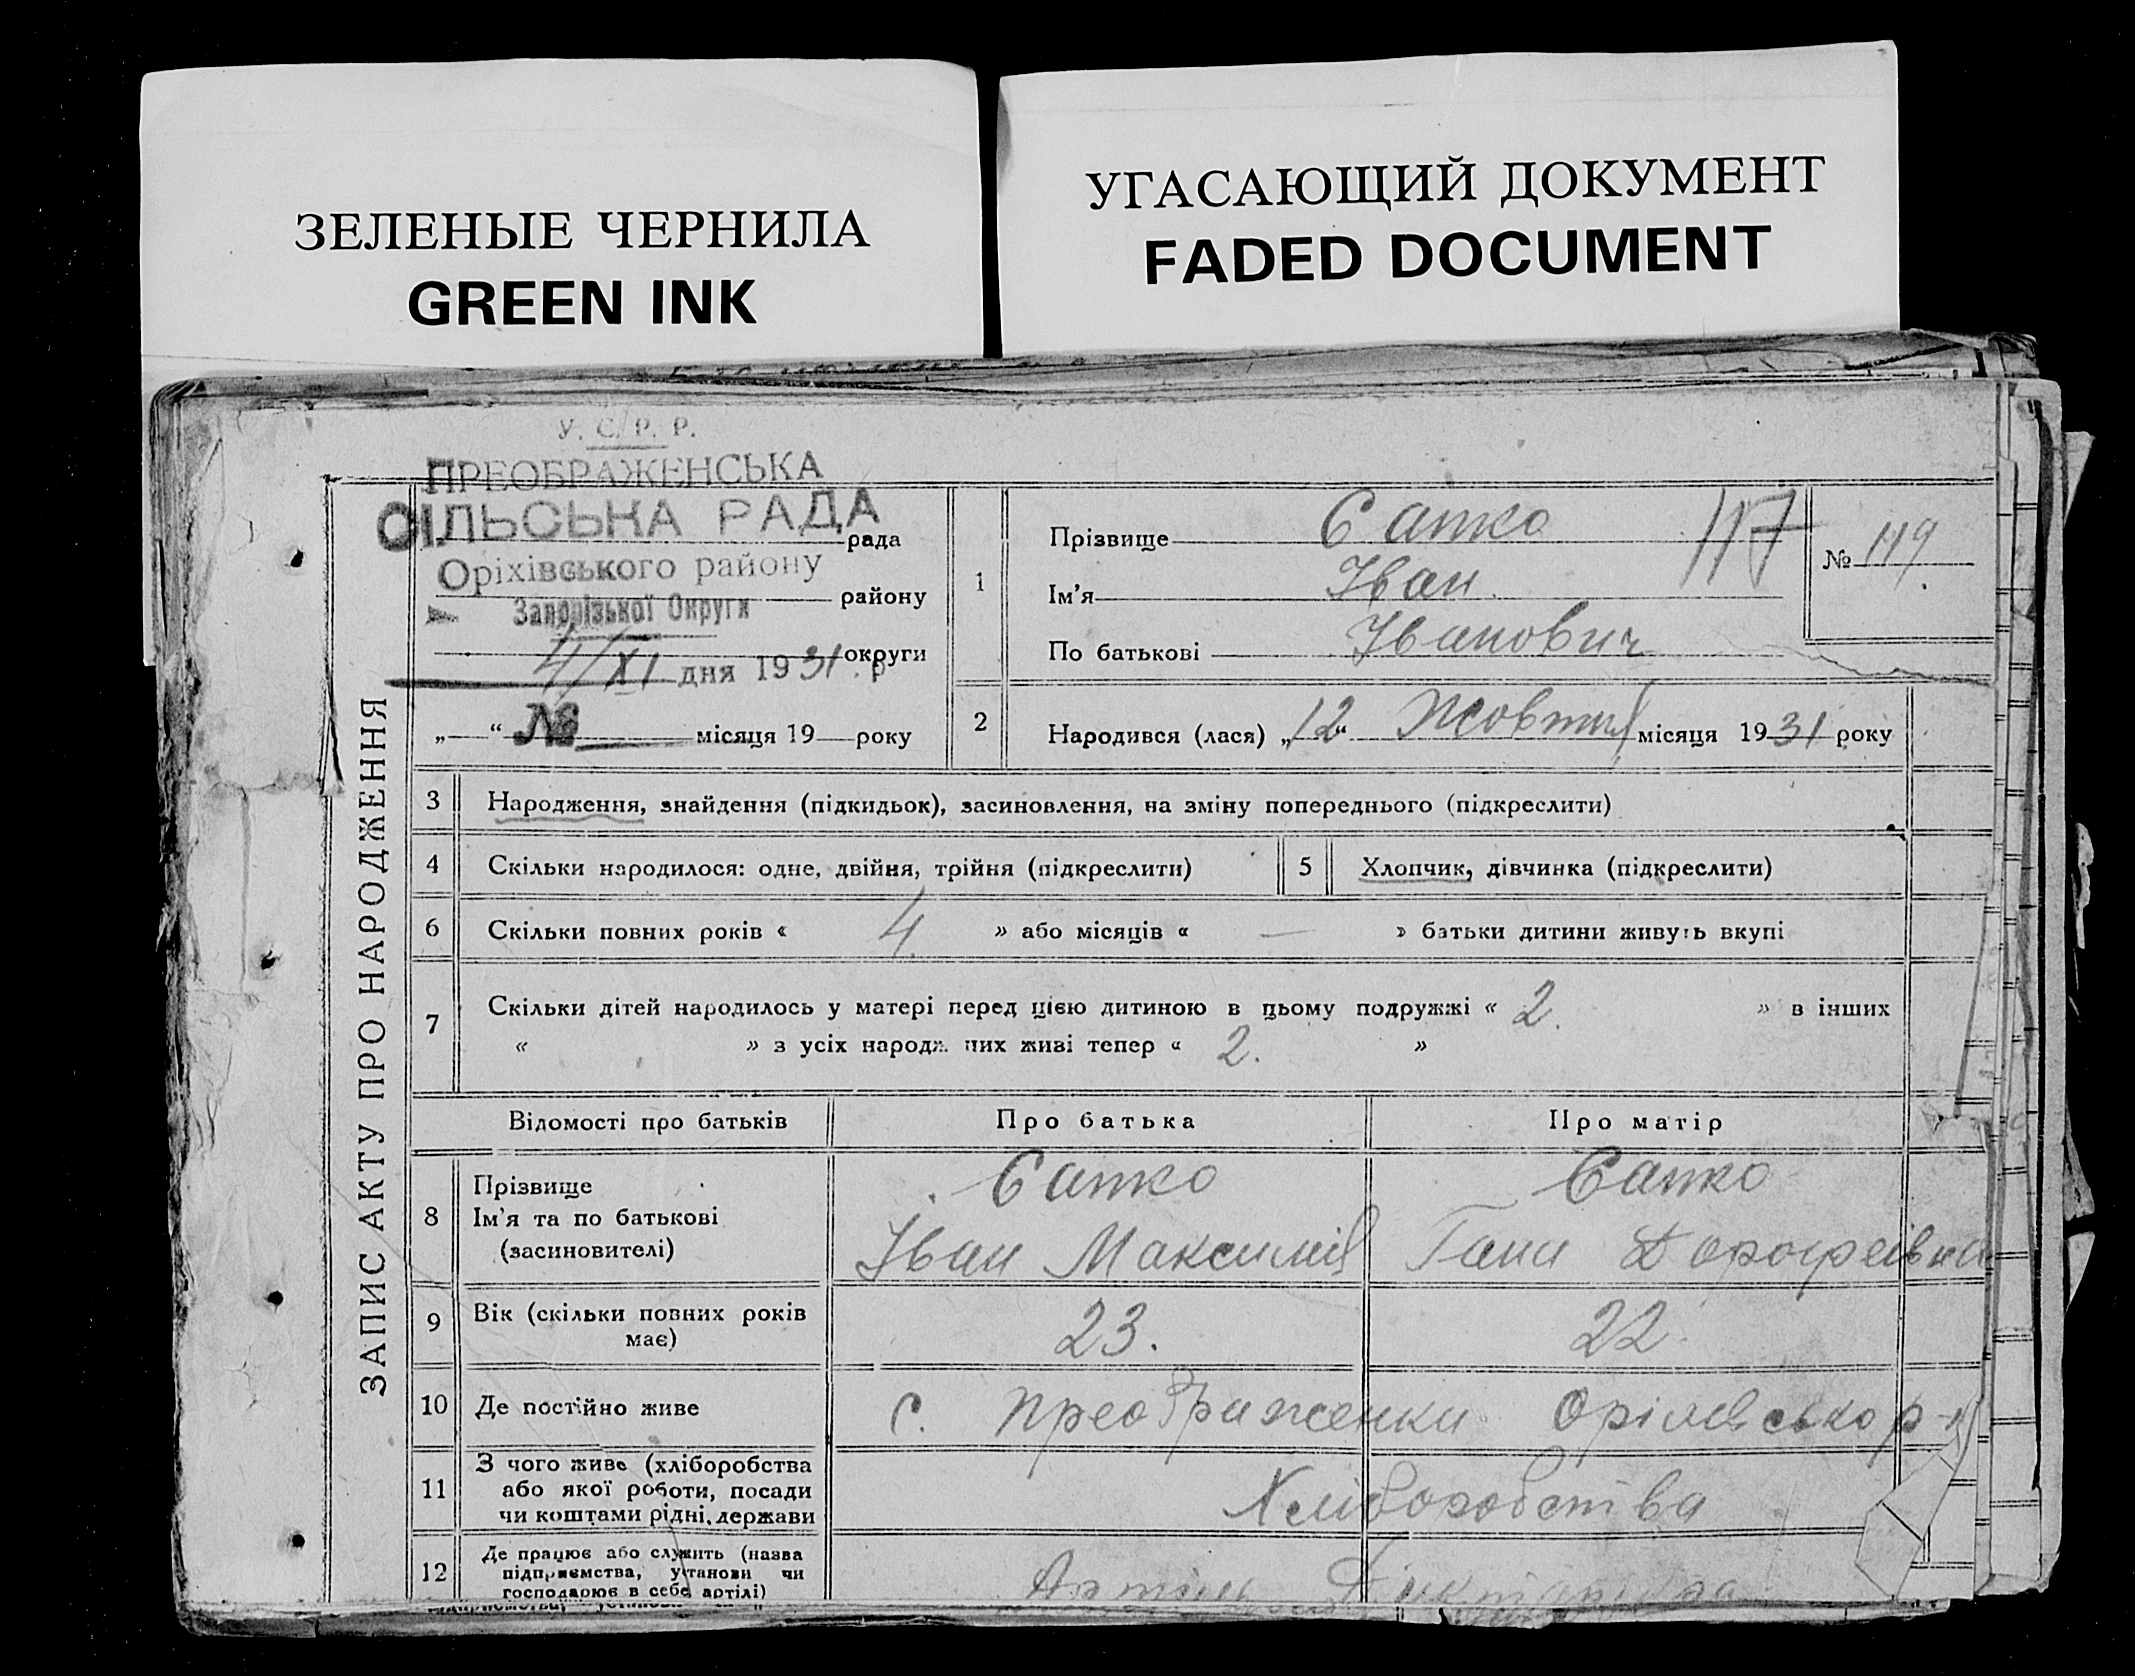 ЗЕЛЕНЫЕ ЧЕРНИЛА
GREEN INK
УГАСАЮЩИЙ ДОКУМЕНТ
FADED DOCUMENT
У. С. Р. Р.
ПРЕОБРАЖЕНСЬКА
СІЛЬСЬКА РАДА
рада
Оріхівського району
району
Запорізької Округи
округи
4/XI дня 1931 р
„ “ № місяця 19 року
ЗАПИС АКТУ ПРО НАРОДЖЕННЯ
1
Прізвище Сапко
117
№ 119
Ім'я Іван
По батькові Іванович
2
Народився (лася) „12“ Жовтня місяця 1931 року
3 Народження, знайдення (підкидьок), засиновлення, на зміну попереднього (підкреслити)
4 Скільки народилося: одне, двійня, трійня (підкреслити)
5 Хлопчик, дівчинка (підкреслити)
6 Скільки повних років « 4 » або місяців « — » батьки дитини живуть вкупі
7 Скільки дітей народилось у матері перед цією дитиною в цьому подружжі « 2. » в інших
« » з усіх народж них живі тепер « 2. »
Відомості про батьків Про батька Про матір
8 Прізвище
Ім'я та по батькові
(засиновителі)
Сапко
Іван Максимів
Сапко
Гана Дорофеівна
9 Вік (скільки повних років
має)
23. 22
10 Де постійно живе с. Преображенки р-н
11 З чого живе (хліборобства
або якої роботи, посади
чи коштами рідні, держави
Хліборобства
12 Де працює або служить (назва
підприємства, установи чи
господарює в себе артілі)
Артіль